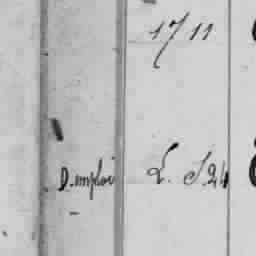 1711
D. emploi L. S. 24